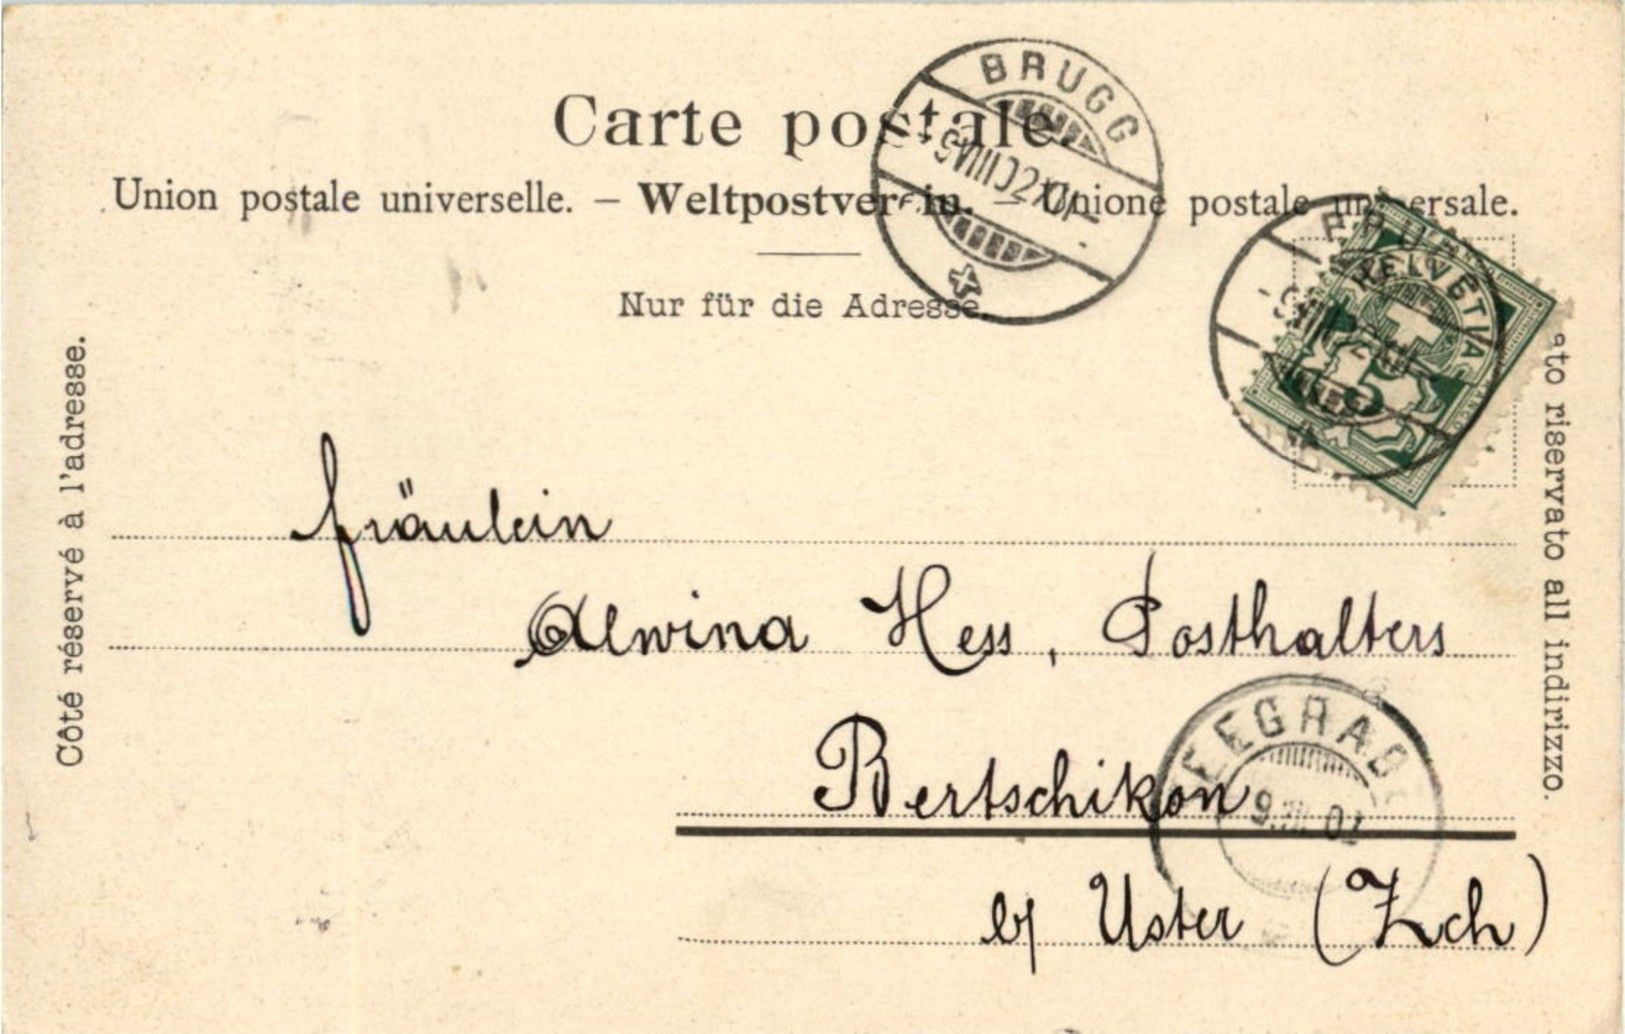 Carte postale.
Union postale universelle. – Weltpostverein. – Unione postale universale.
Nur für die Adresse.
Côté réservé à l'adresse.
ato riservato all indirizzo.
BRUGG
HELVETIA
Fräulein
Alwina Hess, Posthalters
Bertschikon
by Uster (Zch)